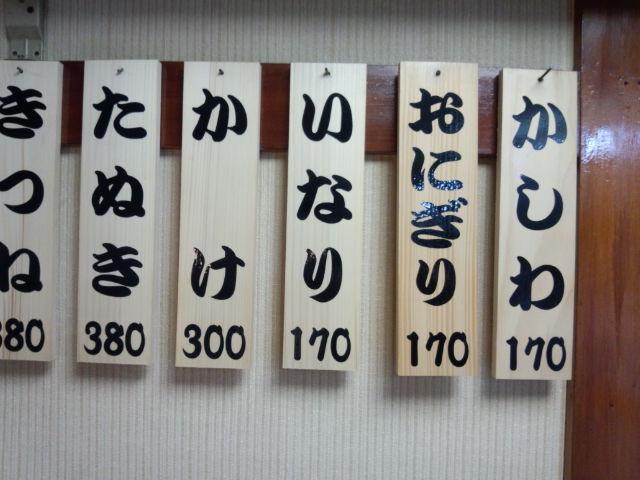 かしわ
170
おにぎり
170
いなり
170
かけ
300
たぬき
380
きつね
380